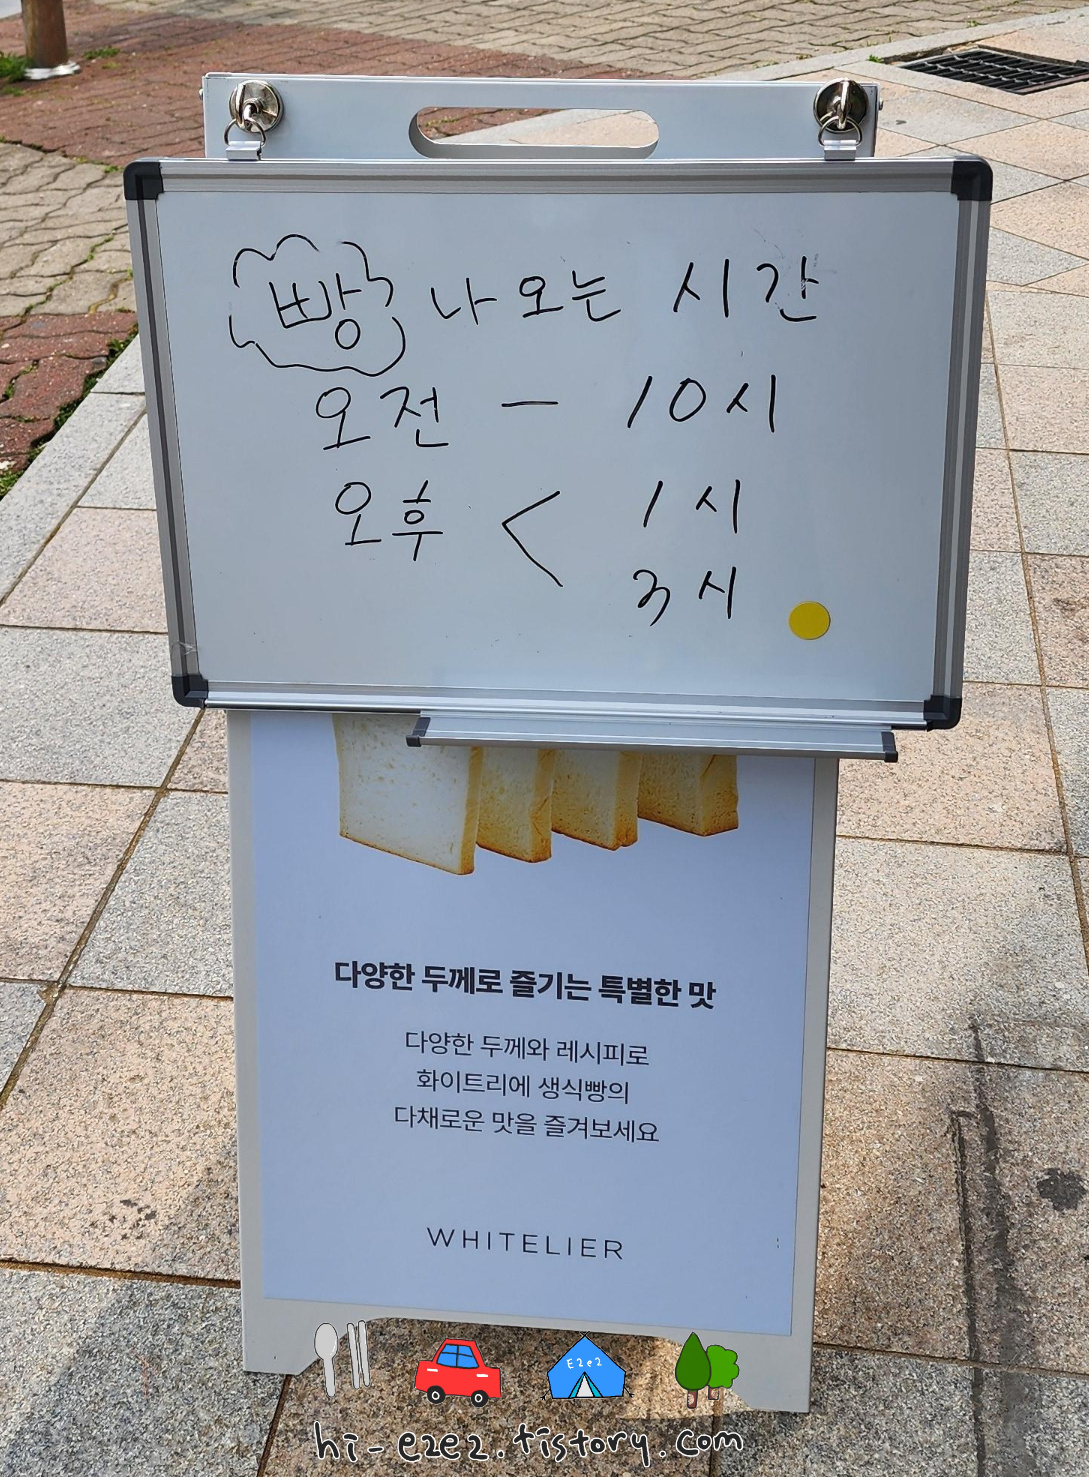 빵 나오는 시간
오전 - 10시
오후 < 1시
3시
다양한 두께로 즐기는 특별한 맛
다양한 두께와 레시피로
화이트리에 생식빵의
다채로운 맛을 즐겨보세요
WHITELIER
E2e2
hi-e2e2.tistory.com